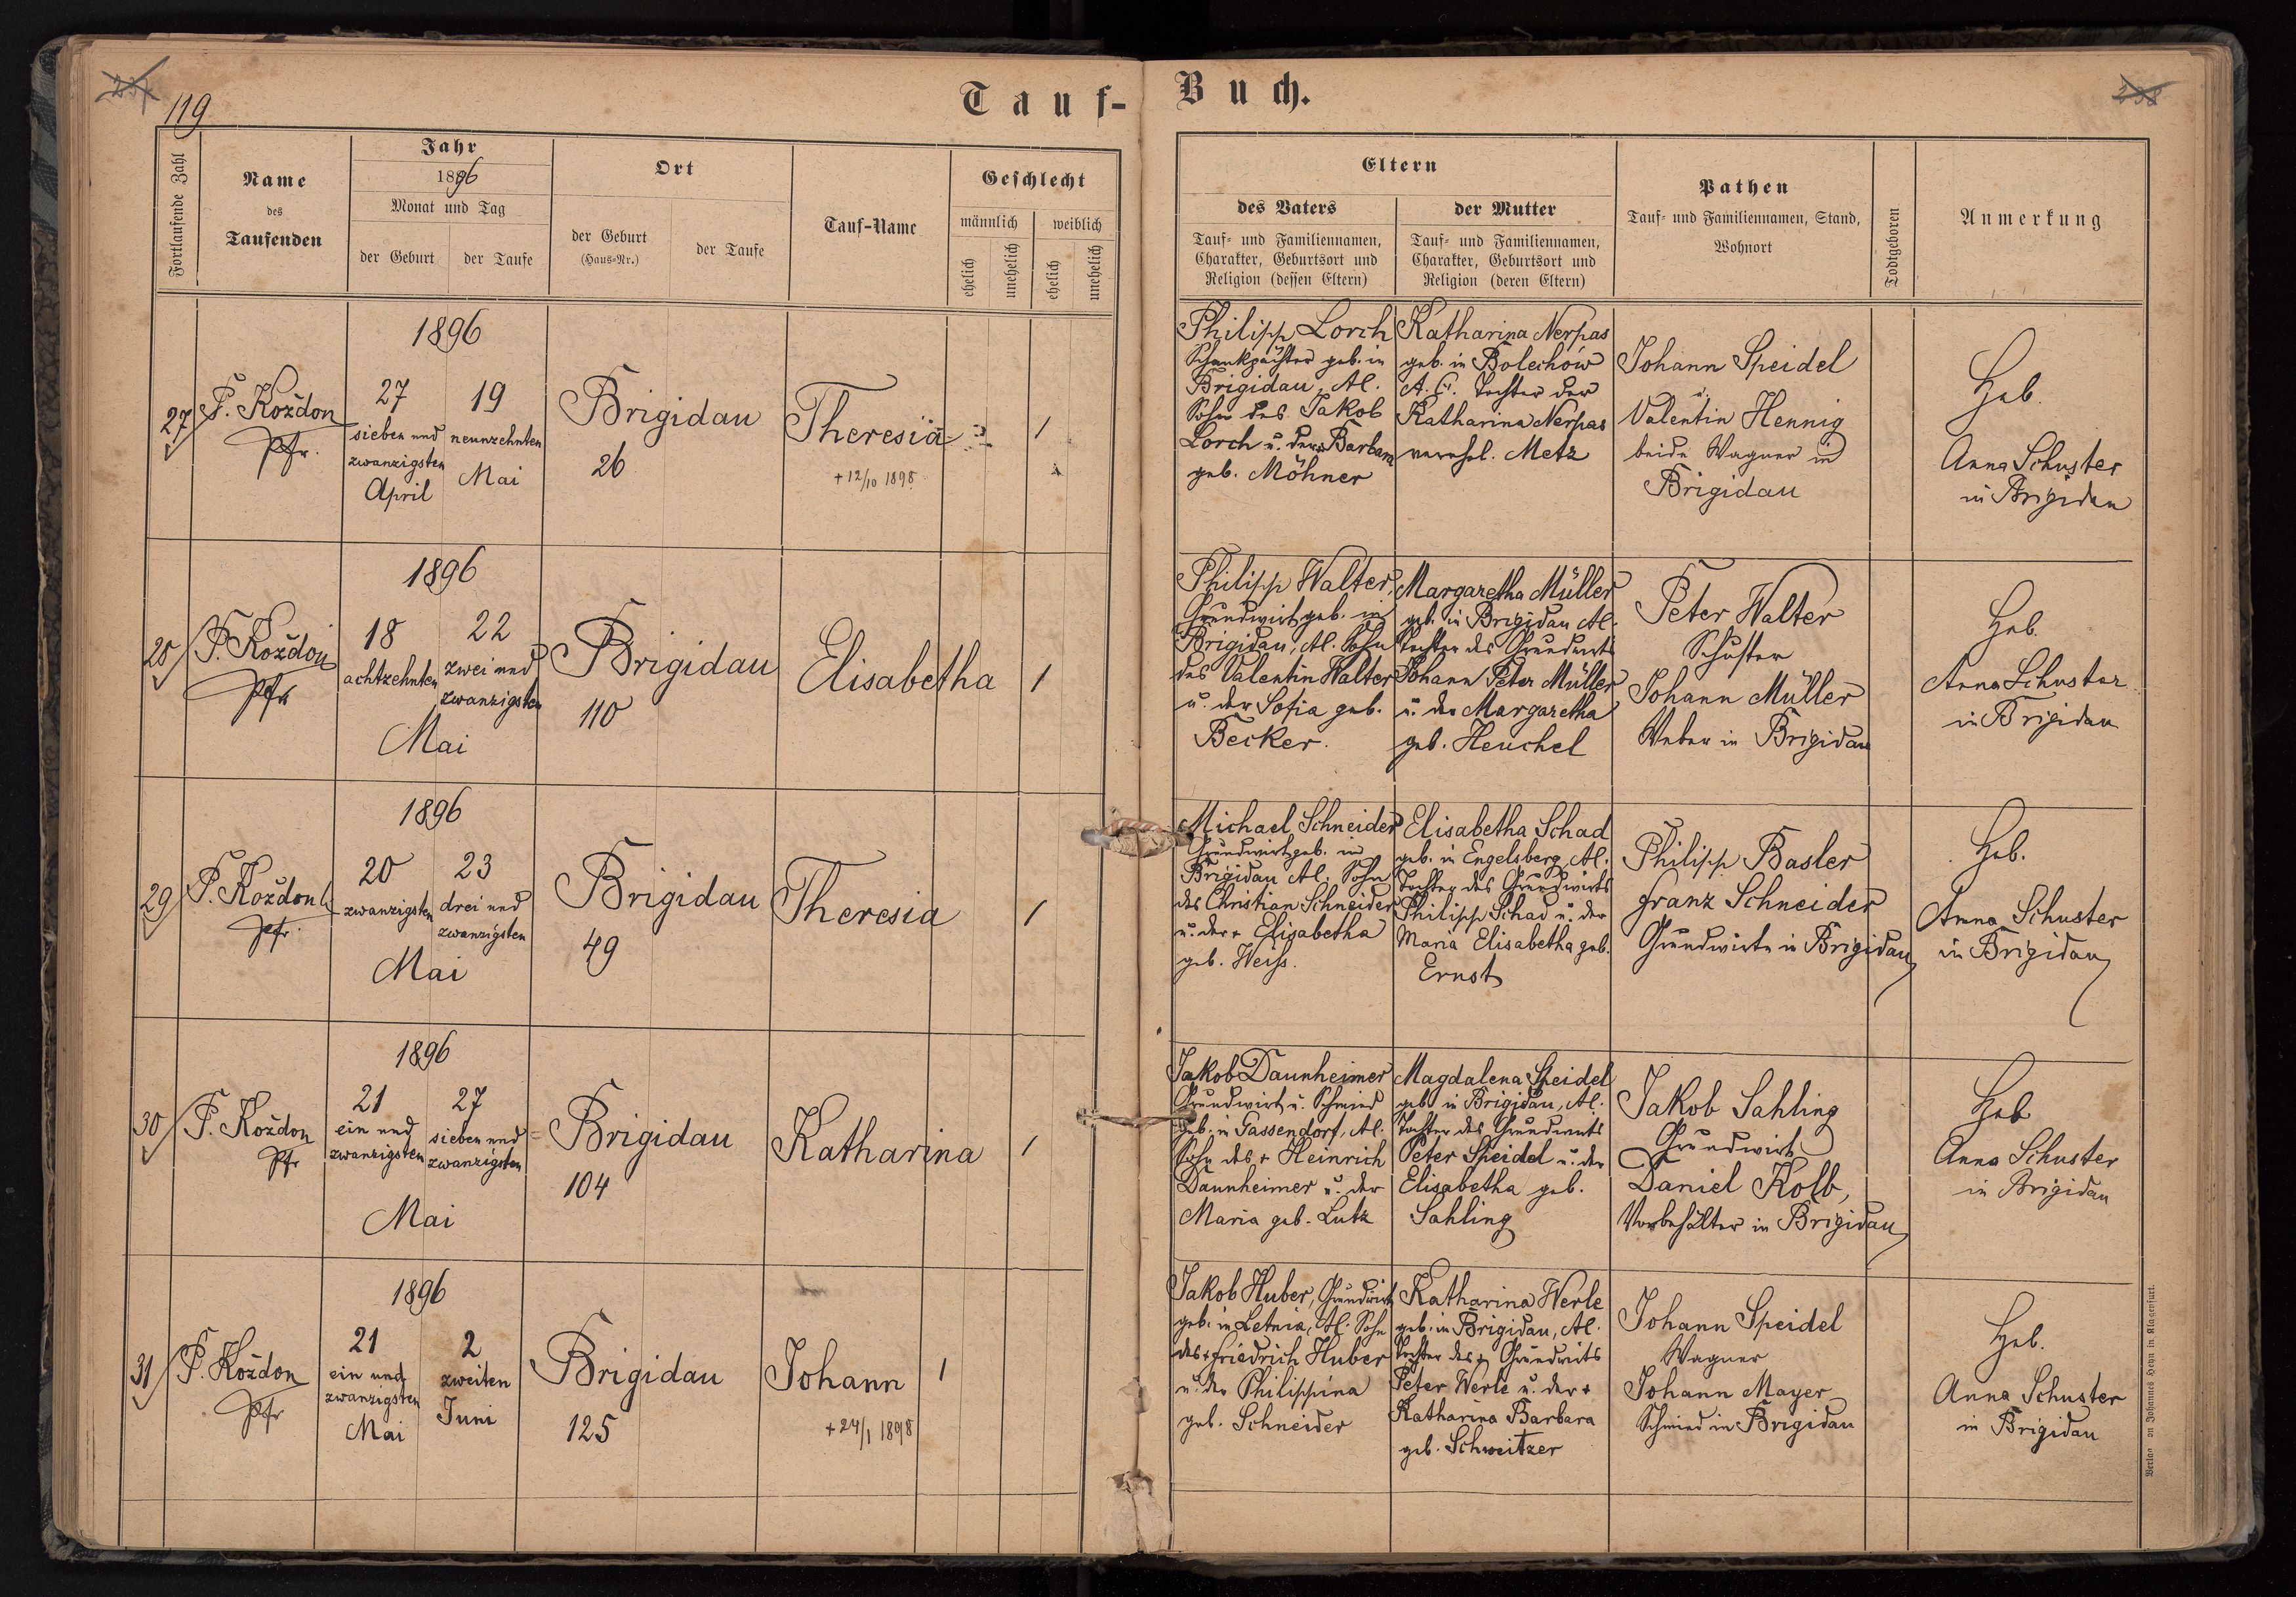 119
Tauf-Buch.
Fortlaufende Zahl
Name
des
Taufenden
Jahr
1896
Monat und Tag
der Geburt
der Taufe
Ort
der Geburt
(Haus-Nr.)
der Taufe
Tauf-Name
Geschlecht
männlich
weiblich
ehelich
unehelich
ehelich
unehelich
Eltern
des Vaters
Tauf- und Familiennamen,
Charakter, Geburtsort und
Religion (dessen Eltern)
der Mutter
Tauf- und Familiennamen,
Charakter, Geburtsort und
Religion (deren Eltern)
Pathen
Tauf- und Familiennamen, Stand,
Wohnort
Todtgeboren
Anmerkung
27
P. Koždon
Pfr.
1896
27
sieben und
zwanzigsten
April
19
neunzehnten
Mai
Brigidau
26
Theresia
+ 12/10 1898
1
Philipp Lorch
Schankpächter geb. in
Brigidau, A.C.
Sohn des Jakob
Lorch u. der Barbara
geb. Möhner
Katharina Nerpas
geb. in Bolechów
A.C. Tochter der
Katharina Nerpas
verehel. Metz
Johann Speidel
u.
Valentin Hennig
beide Wagner in
Brigidau
Heb.
Anna Schuster
in Brigidau
28
P. Koždon
Pfr
1896
18
achtzehnten
22
zwei und
zwanzigsten
Mai
Brigidau
110
Elisabetha
1
Philipp Walter,
Grundwirt geb. in
Brigidau, A.C. Sohn
des Valentin Walter
u. der Sofia geb.
Becker.
Margaretha Müller
geb. in Brigidau A.C.
Tochter des Grundwirts
Johann Peter Müller
u. der Margaretha
geb. Heuchel
Peter Walter
Schuster
Johann Müller
Weber in Brigidau
Heb.
Anna Schuster
in Brigidau
29
P. Koždon
Pfr.
1896
20
zwanzigsten
23
drei und
zwanzigsten
Mai
Brigidau
49
Theresia
1
Michael Schneider
Grundwirt geb. in
Brigidau A.C. Sohn
des Christian Schneider
u. der + Elisabetha
geb. Weiss.
Elisabetha Schad
geb. in Engelsberg A.C.
Tochter des Grundwirts
Philipp Schad u. der
Maria Elisabetha geb.
Ernst
Philipp Basler
Franz Schneider
Grundwirte in Brigidau
Heb.
Anna Schuster
in Brigidau
30
P. Koždon
Pfr
1896
21
ein und
zwanzigsten
27
sieben und
zwanzigsten
Mai
Brigidau
104
Katharina
1
Jakob Daunheimer
Grundwirt u. Schmied
geb. in Gassendorf, A.C.
Sohn des + Heinrich
Daunheimer u. der
Maria geb. Lutz
Magdalena Speidel
geb. in Brigidau, A.C.
Tochter des Grundwirts
Peter Speidel u. der
Elisabetha geb.
Sahling
Jakob Sahling
Grundwirt
Daniel Kolb,
Vorbehälter in Brigidau
Heb
Anna Schuster
in Brigidau
31
P. Koždon
Pfr
1896
21
ein und
zwanzigsten
Mai
2
zweiten
Juni
Brigidau
125
Johann
+ 24/1 1898
1
Jakob Huber, Grundwirt
geb. in Letnia, A.C. Sohn
des + Friedrich Huber
u. der Philippina
geb. Schneider
Katharina Werle
geb. in Brigidau, A.C.
Tochter des + Grundwirts
Peter Werle u. der +
Katharina Barbara
geb. Schweitzer
Johann Speidel
Wagner
Johann Mayer
Schmied in Brigidau
Heb.
Anna Schuster
in Brigidau
Johannes Heyn in Klagenfurt.